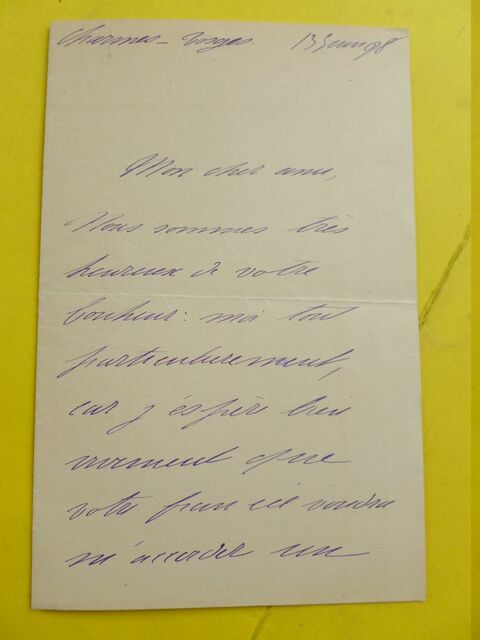 Charmes - Vosges. 13 juin 98
Mon cher ami,
Nous sommes très
heureux de votre
bonheur: moi tout
particulièrement,
car j'espère bien
vivement que
votre fiancée voudra
m'accorder un